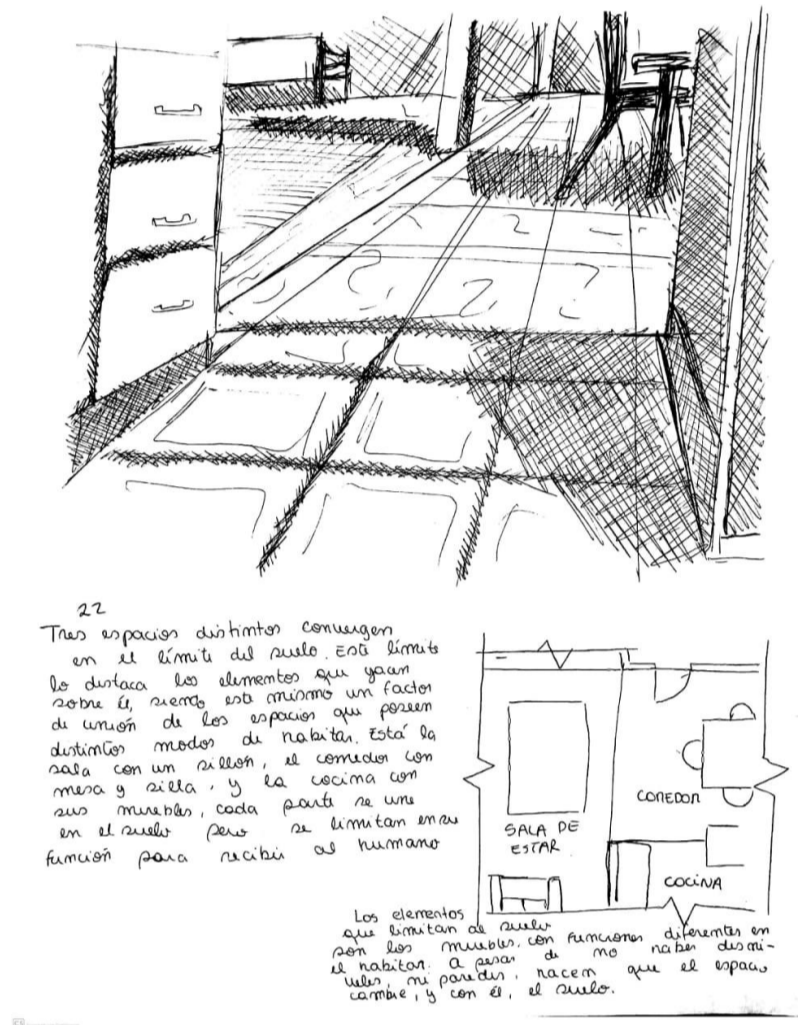 22
Tres espacios distintos convergen
en el límite del suelo. Este límite
lo destaca los elementos que yacen
sobre él, siendo este mismo un factor
de unión de los espacios que poseen
distintos modos de habitar. Está la
sala con un sillón, el comedor con
mesa y silla, y la cocina con
sus muebles, cada parte se une
en el suelo pero se limitan en su
función para recibir al humano
SALA DE
ESTAR
COMEDOR
COCINA
Los elementos
que limitan al suelo
son los muebles, con funciones diferentes en
el habitar. A pesar de no haber desni-
veles, ni paredes, hacen que el espacio
cambie, y con él, el suelo.